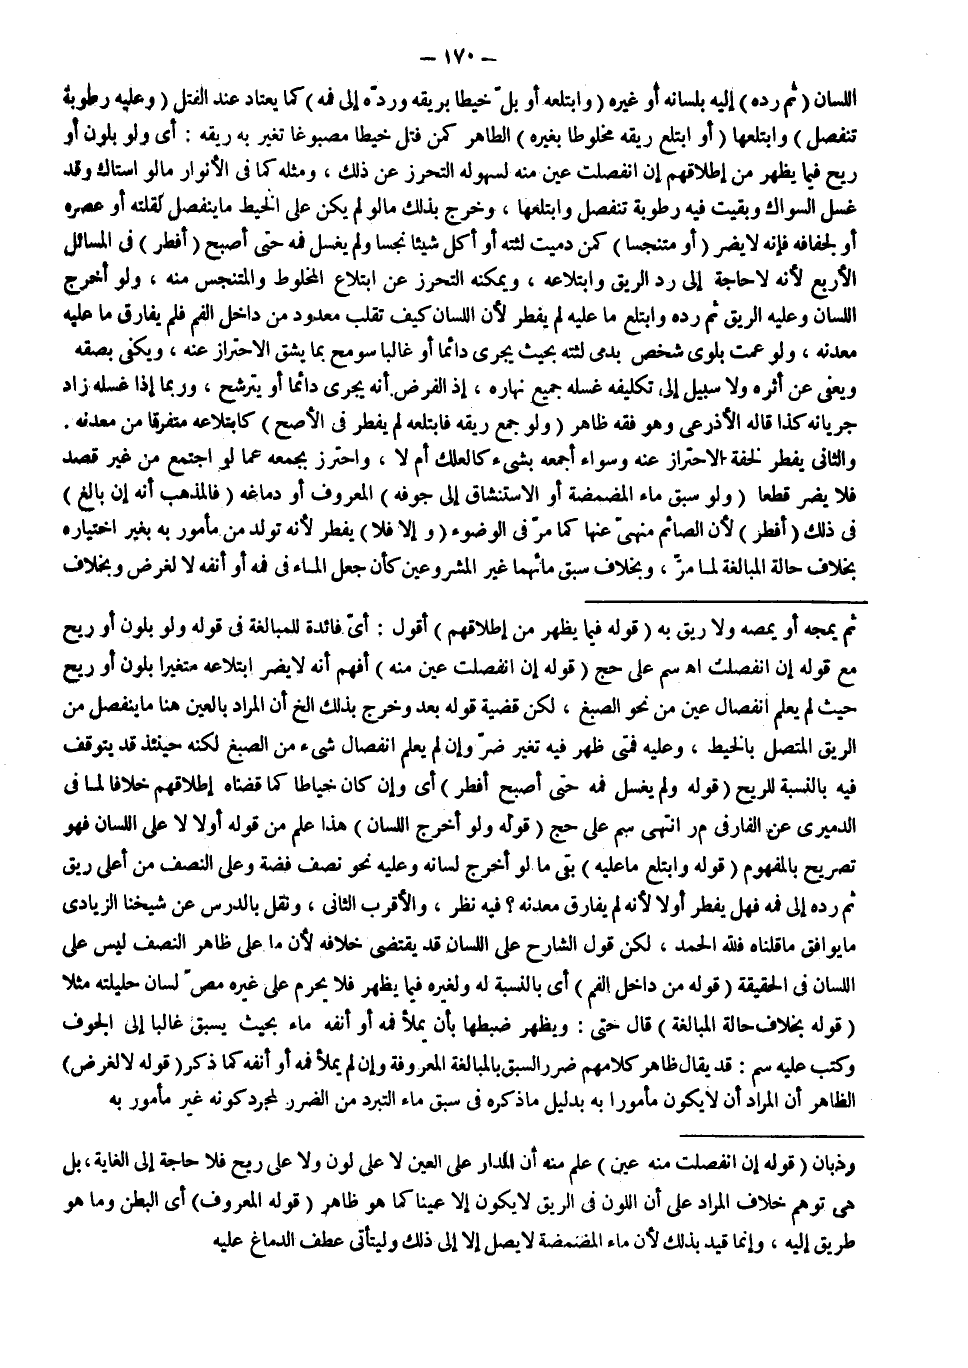 — ١٧٠ —
اللسان (ثم رده) إليه بلسانه أو غيره (وابتلعه أو بلّ خيطا بريقه وردّه إلى فمه) كما يعتاد عند الفتل (وعليه رطوبة
تنفصل) وابتلعها (أو ابتلع ريقه مخلوطا بغيره) الطاهر كمن فتل خيطا مصبوغا تغير به ريقه : أى ولو بلون أو
ريح فيما يظهر من إطلاقهم إن انفصلت عين منه لسهوله التحرز عن ذلك ، ومثله كما فى الأنوار مالو استاك وقد
غسل السواك وبقيت فيه رطوبة تنفصل وابتلعها ، وخرج بذلك مالو لم يكن على الخيط ماينفصل لقلته أو عصره
أو لجفافه فإنه لايضر (أو متنجسا) كمن دميت لثته أو أكل شيئا نجسا ولم يغسل فمه حتى أصبح (أفطر) فى المسائل
الأربع لأنه لاحاجة إلى رد الريق وابتلاعه ، ويمكنه التحرز عن ابتلاع المخلوط والمتنجس منه ، ولو أخرج
اللسان وعليه الريق ثم رده وابتلع ما عليه لم يفطر لأن اللسان كيف تقلب معدود من داخل الفم فلم يفارق ما عليه
معدنه ، ولو عمت بلوى شخص بدمى لثته بحيث يجرى دائما أو غالبا سومح بما يشق الاحتراز عنه ، ويكفى بصقه
ويعفى عن أثره ولا سبيل إلى تكليفه غسله جميع نهاره ، إذ الفرض أنه يجرى دائما أو يترشح ، وربما إذا غسله زاد
جريانه كذا قاله الأذرعى وهو فقه ظاهر (ولو جمع ريقه فابتلعه لم يفطر فى الأصح) كابتلاعه متفرقا من معدنه .
والثانى يفطر لخفة الاحتراز عنه وسواء أجمعه بشىء كالعلك أم لا ، واحترز بجمعه عما لو اجتمع من غير قصد
فلا يضر قطعا (ولو سبق ماء المضمضة أو الاستنشاق إلى جوفه) المعروف أو دماغه (فالمذهب أنه إن بالغ)
فى ذلك (أفطر) لأن الصائم منهىّ عنها كما مرّ فى الوضوء (و إلا فلا) يفطر لأنه تولد من مأمور به بغير اختياره
بخلاف حالة المبالغة لما مرّ ، وبخلاف سبق مائهما غير المشروعين كأن جعل الماء فى فمه أو أنفه لا لغرض وبخلاف
ثم يمجه أو يمصه ولا ريق به (قوله فيما يظهر من إطلاقهم) أقول : أىّ فائدة للمبالغة فى قوله ولو بلون أو ريح
مع قوله إن انفصلت اهـ سم على حج (قوله إن انفصلت عين منه) أفهم أنه لايضر ابتلاعه متغيرا بلون أو ريح
حيث لم يعلم انفصال عين من نحو الصبغ ، لكن قضية قوله بعد وخرج بذلك الخ أن المراد بالعين هنا ماينفصل من
الريق المتصل بالخيط ، وعليه فمتى ظهر فيه تغير ضرّ وإن لم يعلم انفصال شىء من الصبغ لكنه حينئذ قد يتوقف
فيه بالنسبة للريح (قوله ولم يغسل فمه حتى أصبح أفطر) أى وإن كان خياطا كما قضاه إطلاقهم خلافا لما فى
الدميرى عن الفارقى م ر انتهى سم على حج (قوله ولو أخرج اللسان) هذا علم من قوله أولا لا على اللسان فهو
تصريح بالمفهوم (قوله وابتلع ماعليه) بقى ما لو أخرج لسانه وعليه نحو نصف فضة وعلى النصف من أعلى ريق
ثم رده إلى فمه فهل يفطر أولا لأنه لم يفارق معدنه ؟ فيه نظر ، والأقرب الثانى ، ونقل بالدرس عن شيخنا الزيادى
مايوافق ماقلناه فلله الحمد ، لكن قول الشارح على اللسان قد يقتضى خلافه لأن ما على ظاهر النصف ليس على
اللسان فى الحقيقة (قوله من داخل الفم) أى بالنسبة له ولغيره فيما يظهر فلا يحرم على غيره مصّ لسان حليلته مثلا
(قوله بخلاف حالة المبالغة) قال حتى : ويظهر ضبطها بأن يملأ فمه أو أنفه ماء بحيث يسبق غالبا إلى الجوف
وكتب عليه سم : قد يقال ظاهر كلامهم ضرر السبق بالمبالغة المعروفة وإن لم يملأ فمه أو أنفه كما ذكر (قوله لالغرض)
الظاهر أن المراد أن لايكون مأمورا به بدليل ماذكره فى سبق ماء التبرد من الضرر لمجرد كونه غير مأمور به
وذبان (قوله إن انفصلت منه عين) علم منه أن المدار على العين لا على لون ولا على ريح فلا حاجة إلى الغاية ، بل
هى توهم خلاف المراد على أن اللون فى الريق لايكون إلا عينا كما هو ظاهر (قوله المعروف) أى البطن وما هو
طريق إليه ، وإنما قيد بذلك لأن ماء المضمضة لايصل إلا إلى ذلك وليتأتى عطف الدماغ عليه